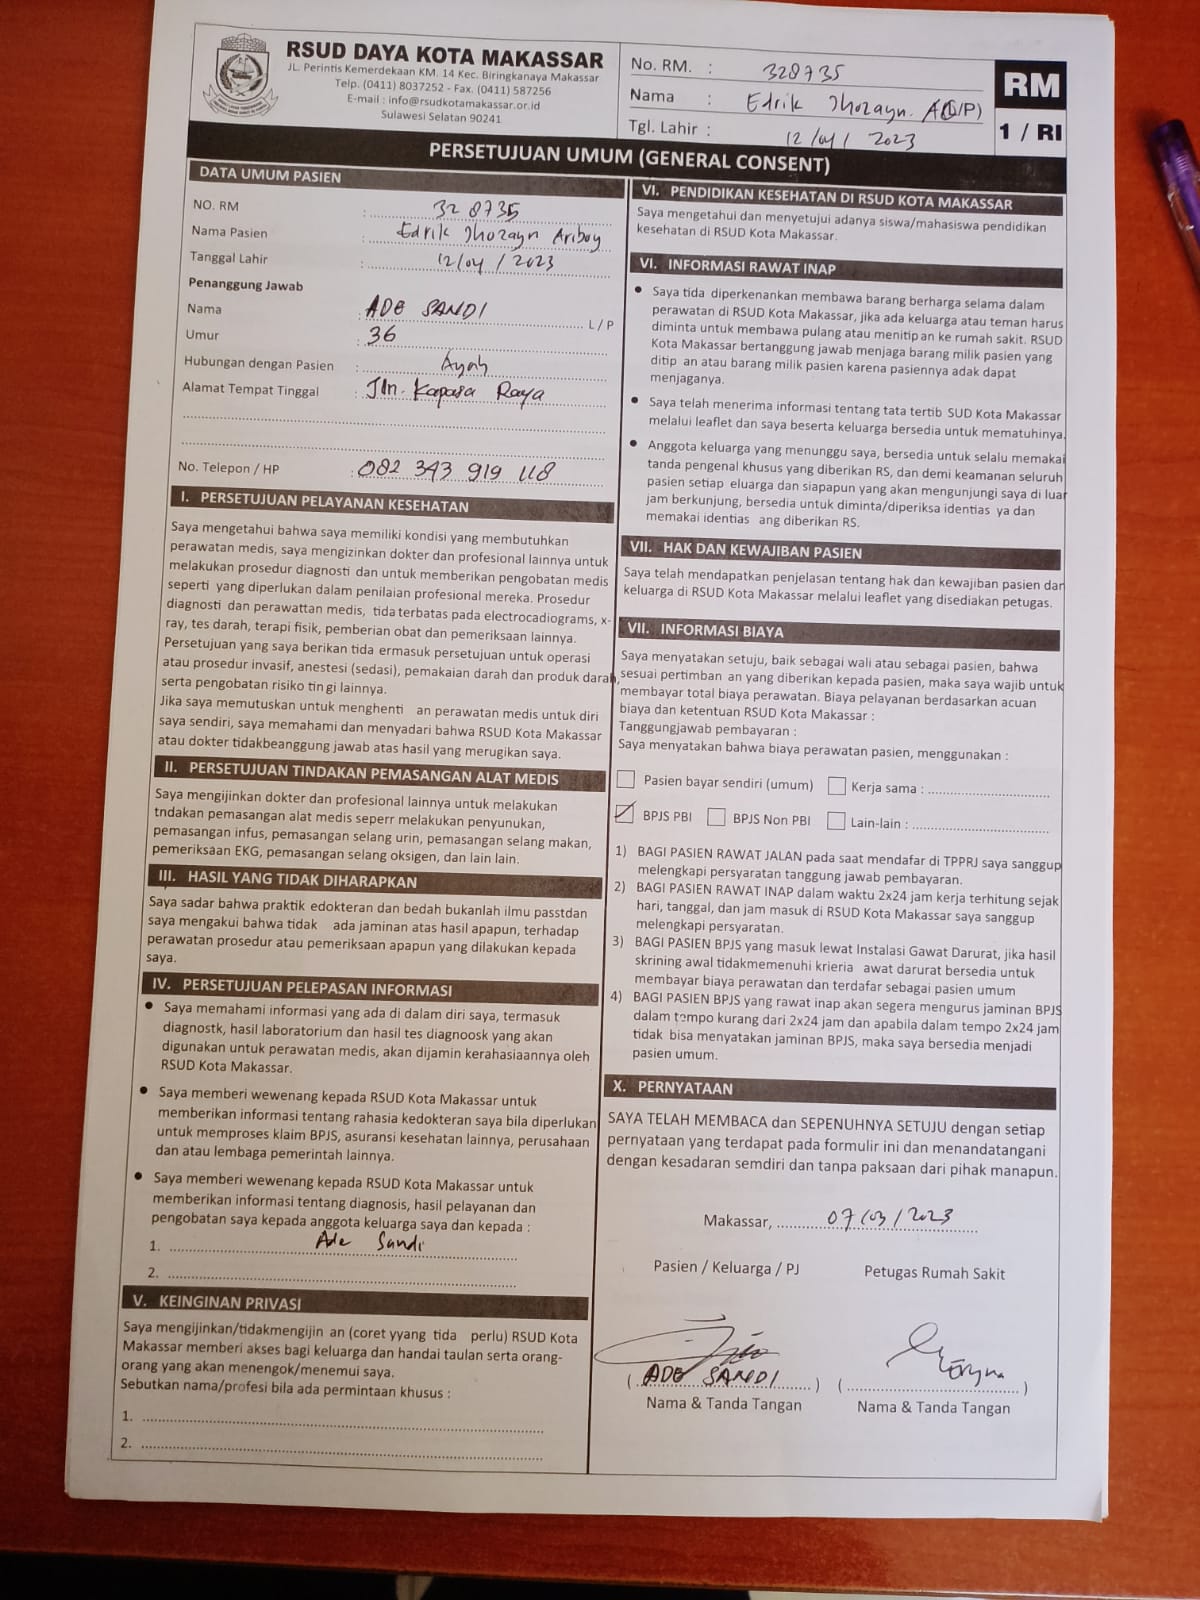 RSUD DAYA KOTA MAKASSAR
JL. Perintis Kemerdekaan KM. 14 Kec. Biringkanaya Makassar
Telp. (0411) 8037252 - Fax. (0411) 587256
E-mail : info@rsudkotamakassar.or.id
Sulawesi Selatan 90241
No. RM. : 328735
Nama : Edrik Jhozayn. (L/P)
Tgl. Lahir : 12/04/2023
RM
1 / RI
PERSETUJUAN UMUM (GENERAL CONSENT)
DATA UMUM PASIEN
NO. RM : 328735
Nama Pasien : Edrik Jhozayn Ariboy
Tanggal Lahir : 12/04/2023
Penanggung Jawab
Nama : ADE SANDI L / P
Umur : 36
Hubungan dengan Pasien : Ayah
Alamat Tempat Tinggal : Jln. Kapasa Raya
No. Telepon / HP : 082 343 919 118
I. PERSETUJUAN PELAYANAN KESEHATAN
Saya mengetahui bahwa saya memiliki kondisi yang membutuhkan
perawatan medis, saya mengizinkan dokter dan profesional lainnya untuk
melakukan prosedur diagnosti dan untuk memberikan pengobatan medis
seperti yang diperlukan dalam penilaian profesional mereka. Prosedur
diagnosti dan perawattan medis, tida terbatas pada electrocadiograms, x-
ray, tes darah, terapi fisik, pemberian obat dan pemeriksaan lainnya.
Persetujuan yang saya berikan tida ermasuk persetujuan untuk operasi
atau prosedur invasif, anestesi (sedasi), pemakaian darah dan produk darah,
serta pengobatan risiko tin gi lainnya.
Jika saya memutuskan untuk menghenti an perawatan medis untuk diri
saya sendiri, saya memahami dan menyadari bahwa RSUD Kota Makassar
atau dokter tidakbeanggung jawab atas hasil yang merugikan saya.
II. PERSETUJUAN TINDAKAN PEMASANGAN ALAT MEDIS
Saya mengijinkan dokter dan profesional lainnya untuk melakukan
tndakan pemasangan alat medis seperr melakukan penyunukan,
pemasangan infus, pemasangan selang urin, pemasangan selang makan,
pemeriksaan EKG, pemasangan selang oksigen, dan lain lain.
III. HASIL YANG TIDAK DIHARAPKAN
Saya sadar bahwa praktik edokteran dan bedah bukanlah ilmu passtdan
saya mengakui bahwa tidak ada jaminan atas hasil apapun, terhadap
perawatan prosedur atau pemeriksaan apapun yang dilakukan kepada
saya.
IV. PERSETUJUAN PELEPASAN INFORMASI
• Saya memahami informasi yang ada di dalam diri saya, termasuk
diagnostk, hasil laboratorium dan hasil tes diagnoosk yang akan
digunakan untuk perawatan medis, akan dijamin kerahasiaannya oleh
RSUD Kota Makassar.
• Saya memberi wewenang kepada RSUD Kota Makassar untuk
memberikan informasi tentang rahasia kedokteran saya bila diperlukan
untuk memproses klaim BPJS, asuransi kesehatan lainnya, perusahaan
dan atau lembaga pemerintah lainnya.
• Saya memberi wewenang kepada RSUD Kota Makassar untuk
memberikan informasi tentang diagnosis, hasil pelayanan dan
pengobatan saya kepada anggota keluarga saya dan kepada :
1. Ade Sandi
2.
V. KEINGINAN PRIVASI
Saya mengijinkan/tidakmengijin an (coret yyang tida perlu) RSUD Kota
Makassar memberi akses bagi keluarga dan handai taulan serta orang-
orang yang akan menengok/menemui saya.
Sebutkan nama/profesi bila ada permintaan khusus :
1.
2.
VI. PENDIDIKAN KESEHATAN DI RSUD KOTA MAKASSAR
Saya mengetahui dan menyetujui adanya siswa/mahasiswa pendidikan
kesehatan di RSUD Kota Makassar.
VI. INFORMASI RAWAT INAP
• Saya tida diperkenankan membawa barang berharga selama dalam
perawatan di RSUD Kota Makassar, jika ada keluarga atau teman harus
diminta untuk membawa pulang atau menitip an ke rumah sakit. RSUD
Kota Makassar bertanggung jawab menjaga barang milik pasien yang
ditip an atau barang milik pasien karena pasiennya adak dapat
menjaganya.
• Saya telah menerima informasi tentang tata tertib SUD Kota Makassar
melalui leaflet dan saya beserta keluarga bersedia untuk mematuhinya.
• Anggota keluarga yang menunggu saya, bersedia untuk selalu memakai
tanda pengenal khusus yang diberikan RS, dan demi keamanan seluruh
pasien setiap eluarga dan siapapun yang akan mengunjungi saya di luar
jam berkunjung, bersedia untuk diminta/diperiksa identias ya dan
memakai identias ang diberikan RS.
VII. HAK DAN KEWAJIBAN PASIEN
Saya telah mendapatkan penjelasan tentang hak dan kewajiban pasien dan
keluarga di RSUD Kota Makassar melalui leaflet yang disediakan petugas.
VII. INFORMASI BIAYA
Saya menyatakan setuju, baik sebagai wali atau sebagai pasien, bahwa
sesuai pertimban an yang diberikan kepada pasien, maka saya wajib untuk
membayar total biaya perawatan. Biaya pelayanan berdasarkan acuan
biaya dan ketentuan RSUD Kota Makassar :
Tanggungjawab pembayaran :
Saya menyatakan bahwa biaya perawatan pasien, menggunakan :
Pasien bayar sendiri (umum) Kerja sama :
BPJS PBI BPJS Non PBI Lain-lain :
1) BAGI PASIEN RAWAT JALAN pada saat mendafar di TPPRJ saya sanggup
melengkapi persyaratan tanggung jawab pembayaran.
2) BAGI PASIEN RAWAT INAP dalam waktu 2x24 jam kerja terhitung sejak
hari, tanggal, dan jam masuk di RSUD Kota Makassar saya sanggup
melengkapi persyaratan.
3) BAGI PASIEN BPJS yang masuk lewat Instalasi Gawat Darurat, jika hasil
skrining awal tidakmemenuhi krieria awat darurat bersedia untuk
membayar biaya perawatan dan terdafar sebagai pasien umum
4) BAGI PASIEN BPJS yang rawat inap akan segera mengurus jaminan BPJS
dalam tempo kurang dari 2x24 jam dan apabila dalam tempo 2x24 jam
tidak bisa menyatakan jaminan BPJS, maka saya bersedia menjadi
pasien umum.
X. PERNYATAAN
SAYA TELAH MEMBACA dan SEPENUHNYA SETUJU dengan setiap
pernyataan yang terdapat pada formulir ini dan menandatangani
dengan kesadaran semdiri dan tanpa paksaan dari pihak manapun.
Makassar, 07/03/2023
Pasien / Keluarga / PJ Petugas Rumah Sakit
( ADE SANDI ) ( )
Nama & Tanda Tangan Nama & Tanda Tangan